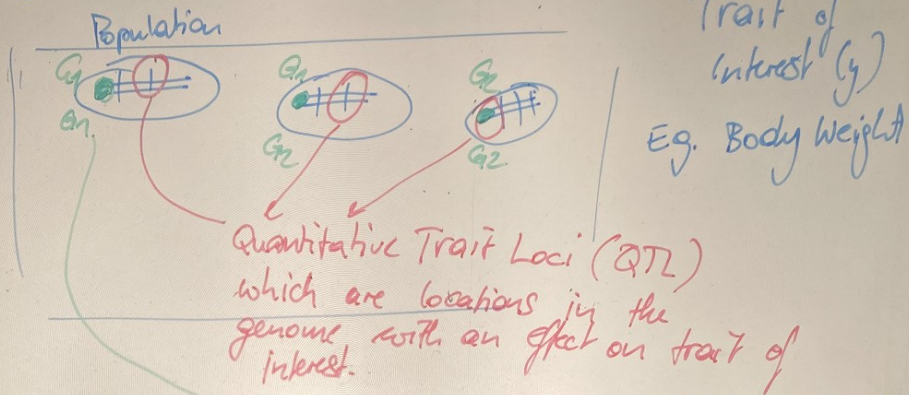 Population
Trait of
Interest (y)
Eg. Body Weight
G1
G1
G1
G2
G2
G2
Quantitative Trait Loci (QTL)
which are locations in the
genome with an effect on trait of
interest.